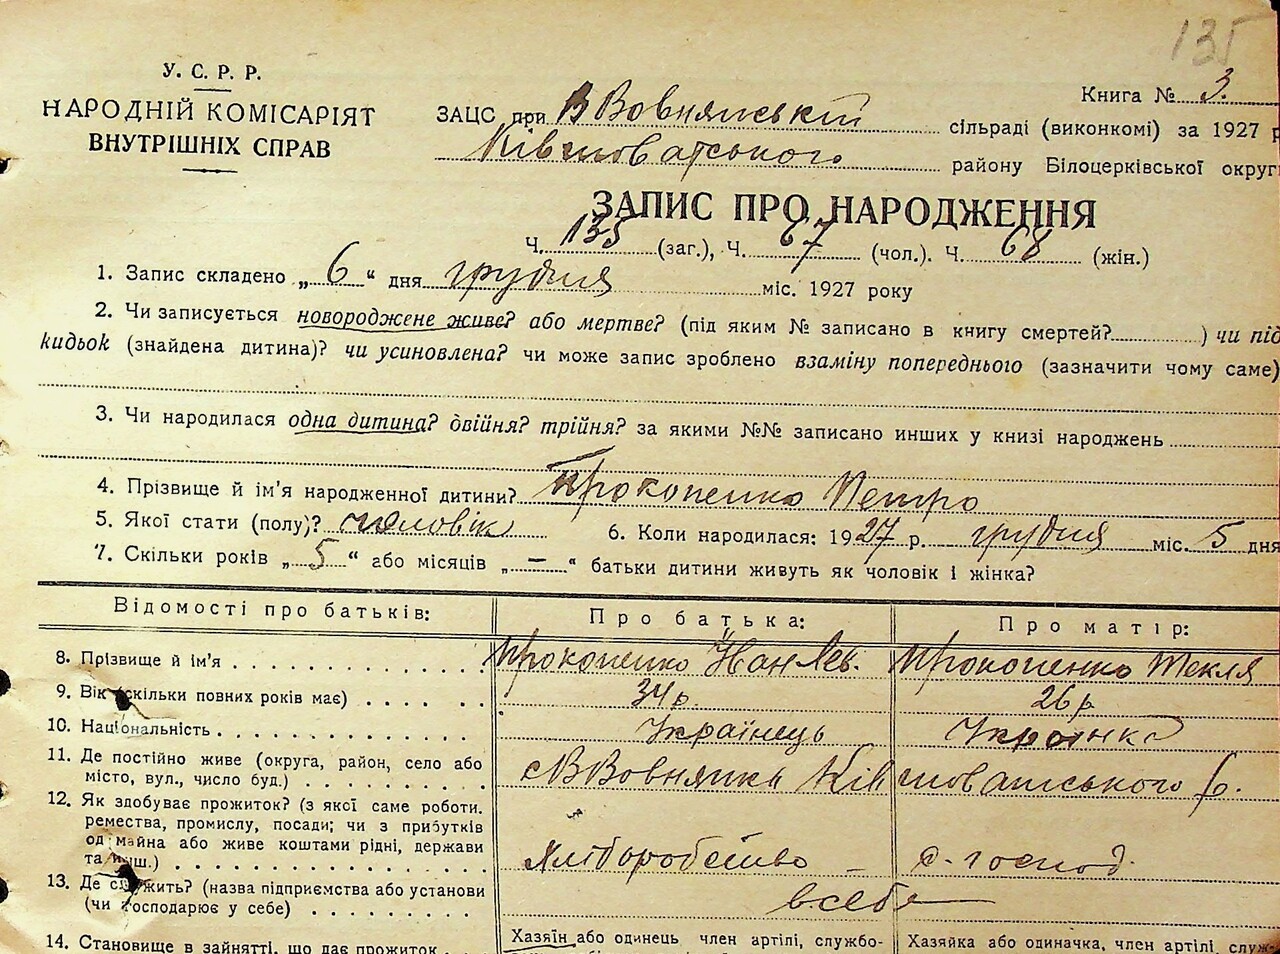 135
У. С. Р. Р.
НАРОДНІЙ КОМІСАРІЯТ
ВНУТРІШНІХ СПРАВ
Книга № 3.
ЗАЦС при В Вовнянській сільраді (виконкомі) за 1927 р
Ківшоватського району Білоцерківської округи
ЗАПИС ПРО НАРОДЖЕННЯ
Ч. 135 (заг.), Ч. 67 (чол.). Ч. 68 (жін.)
1. Запис складено „6“ дня грудня міс. 1927 року
2. Чи записується новороджене живе? або мертве? (під яким № записано в книгу смертей?) чи під
кидьок (знайдена дитина)? чи усиновлена? чи може запис зроблено взаміну попереднього (зазначити чому саме)
3. Чи народилася одна дитина? двійня? трійня? за якими №№ записано инших у книзі народжень
4. Прізвище й ім'я народженної дитини? Прокопенко Петро
5. Якої стати (полу)? чоловік 6. Коли народилася: 1927 р. грудня міс. 5 дня
7. Скільки років „5“ або місяців „—“ батьки дитини живуть як чоловік і жінка?
Відомості про батьків: Про батька: Про матір:
8. Прізвище й ім'я Прокопенко Іван Лев. Прокопенко Текля
9. Вік (скільки повних років має) 34 р. 26 р
10. Національність Українець Українка
11. Де постійно живе (округа, район, село або
місто, вул., число буд.) с В Вовнянка Ківшоватського р.
12. Як здобуває прожиток? (з якої саме роботи.
ремества, промислу, посади; чи з прибутків
од майна або живе коштами рідні, держави
та инш.) Хліборобство – с. господ.
13. Де служить? (назва підприємства або установи
(чи господарює у себе) в себе
14. Становище в зайнятті, що дає прожиток Хазяїн або одинець член артілі, службо- Хазяйка або одиначка, член артілі, служ-